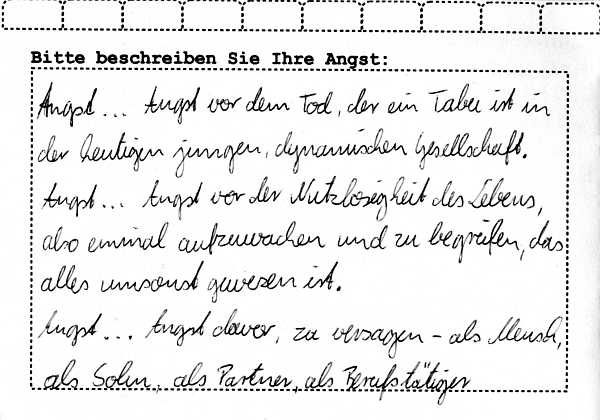 Bitte beschreiben Sie Ihre Angst:
Angst... Angst vor dem Tod, der ein Tabu ist in
der heutigen jungen, dynamischen Gesellschaft.
Angst... Angst vor der Nutzlosigkeit des Lebens,
also einmal aufzuwachen und zu begreifen, das
alles umsonst gewesen ist.
Angst... Angst davor, zu versagen - als Mensch,
als Sohn, als Partner, als Berufstätiger